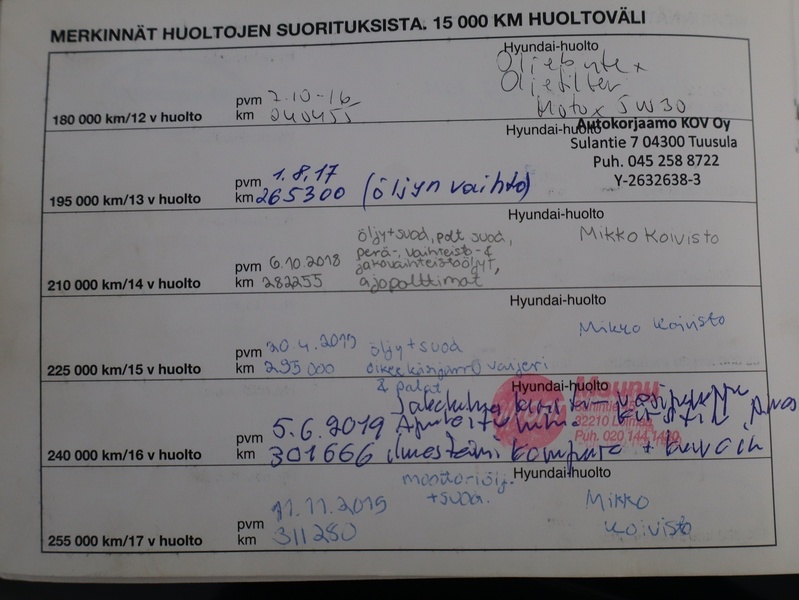 MERKINNÄT HUOLTOJEN SUORITUKSISTA. 15 000 KM HUOLTOVÄLI
Hyundai-huolto
Öljefilter
Motox 5W30
pvm 2.10-16
km
180 000 km/12 v huolto
Hyundai-huolto
Autokorjaamo KOV Oy
Sulantie 7 04300 Tuusula
Puh. 045 258 8722
Y-2632638-3
pvm 1.8.17
km 265300 (öljyn vaihto)
195 000 km/13 v huolto
Hyundai-huolto
Mikko Koivisto
öljy+suod, polt suod,
perä-, vaihteisto- &
jakovaihteistoöljyt,
ajopolttimat
pvm 6.10.2018
km 282255
210 000 km/14 v huolto
Hyundai-huolto
Mikko Koivisto
pvm 20.4.2019 öljy+suod
km 295000 oikee käsijarru vaijeri
& palat
225 000 km/15 v huolto
Hyundai-huolto
Jakohihna
pvm 5.6.2019 Apulaitehihna
km 301666
Puh. 020 144 1420
240 000 km/16 v huolto
Hyundai-huolto
moottoriölj.
+suod.
Mikko
Koivisto
pvm 11.11.2019
km 311280
255 000 km/17 v huolto